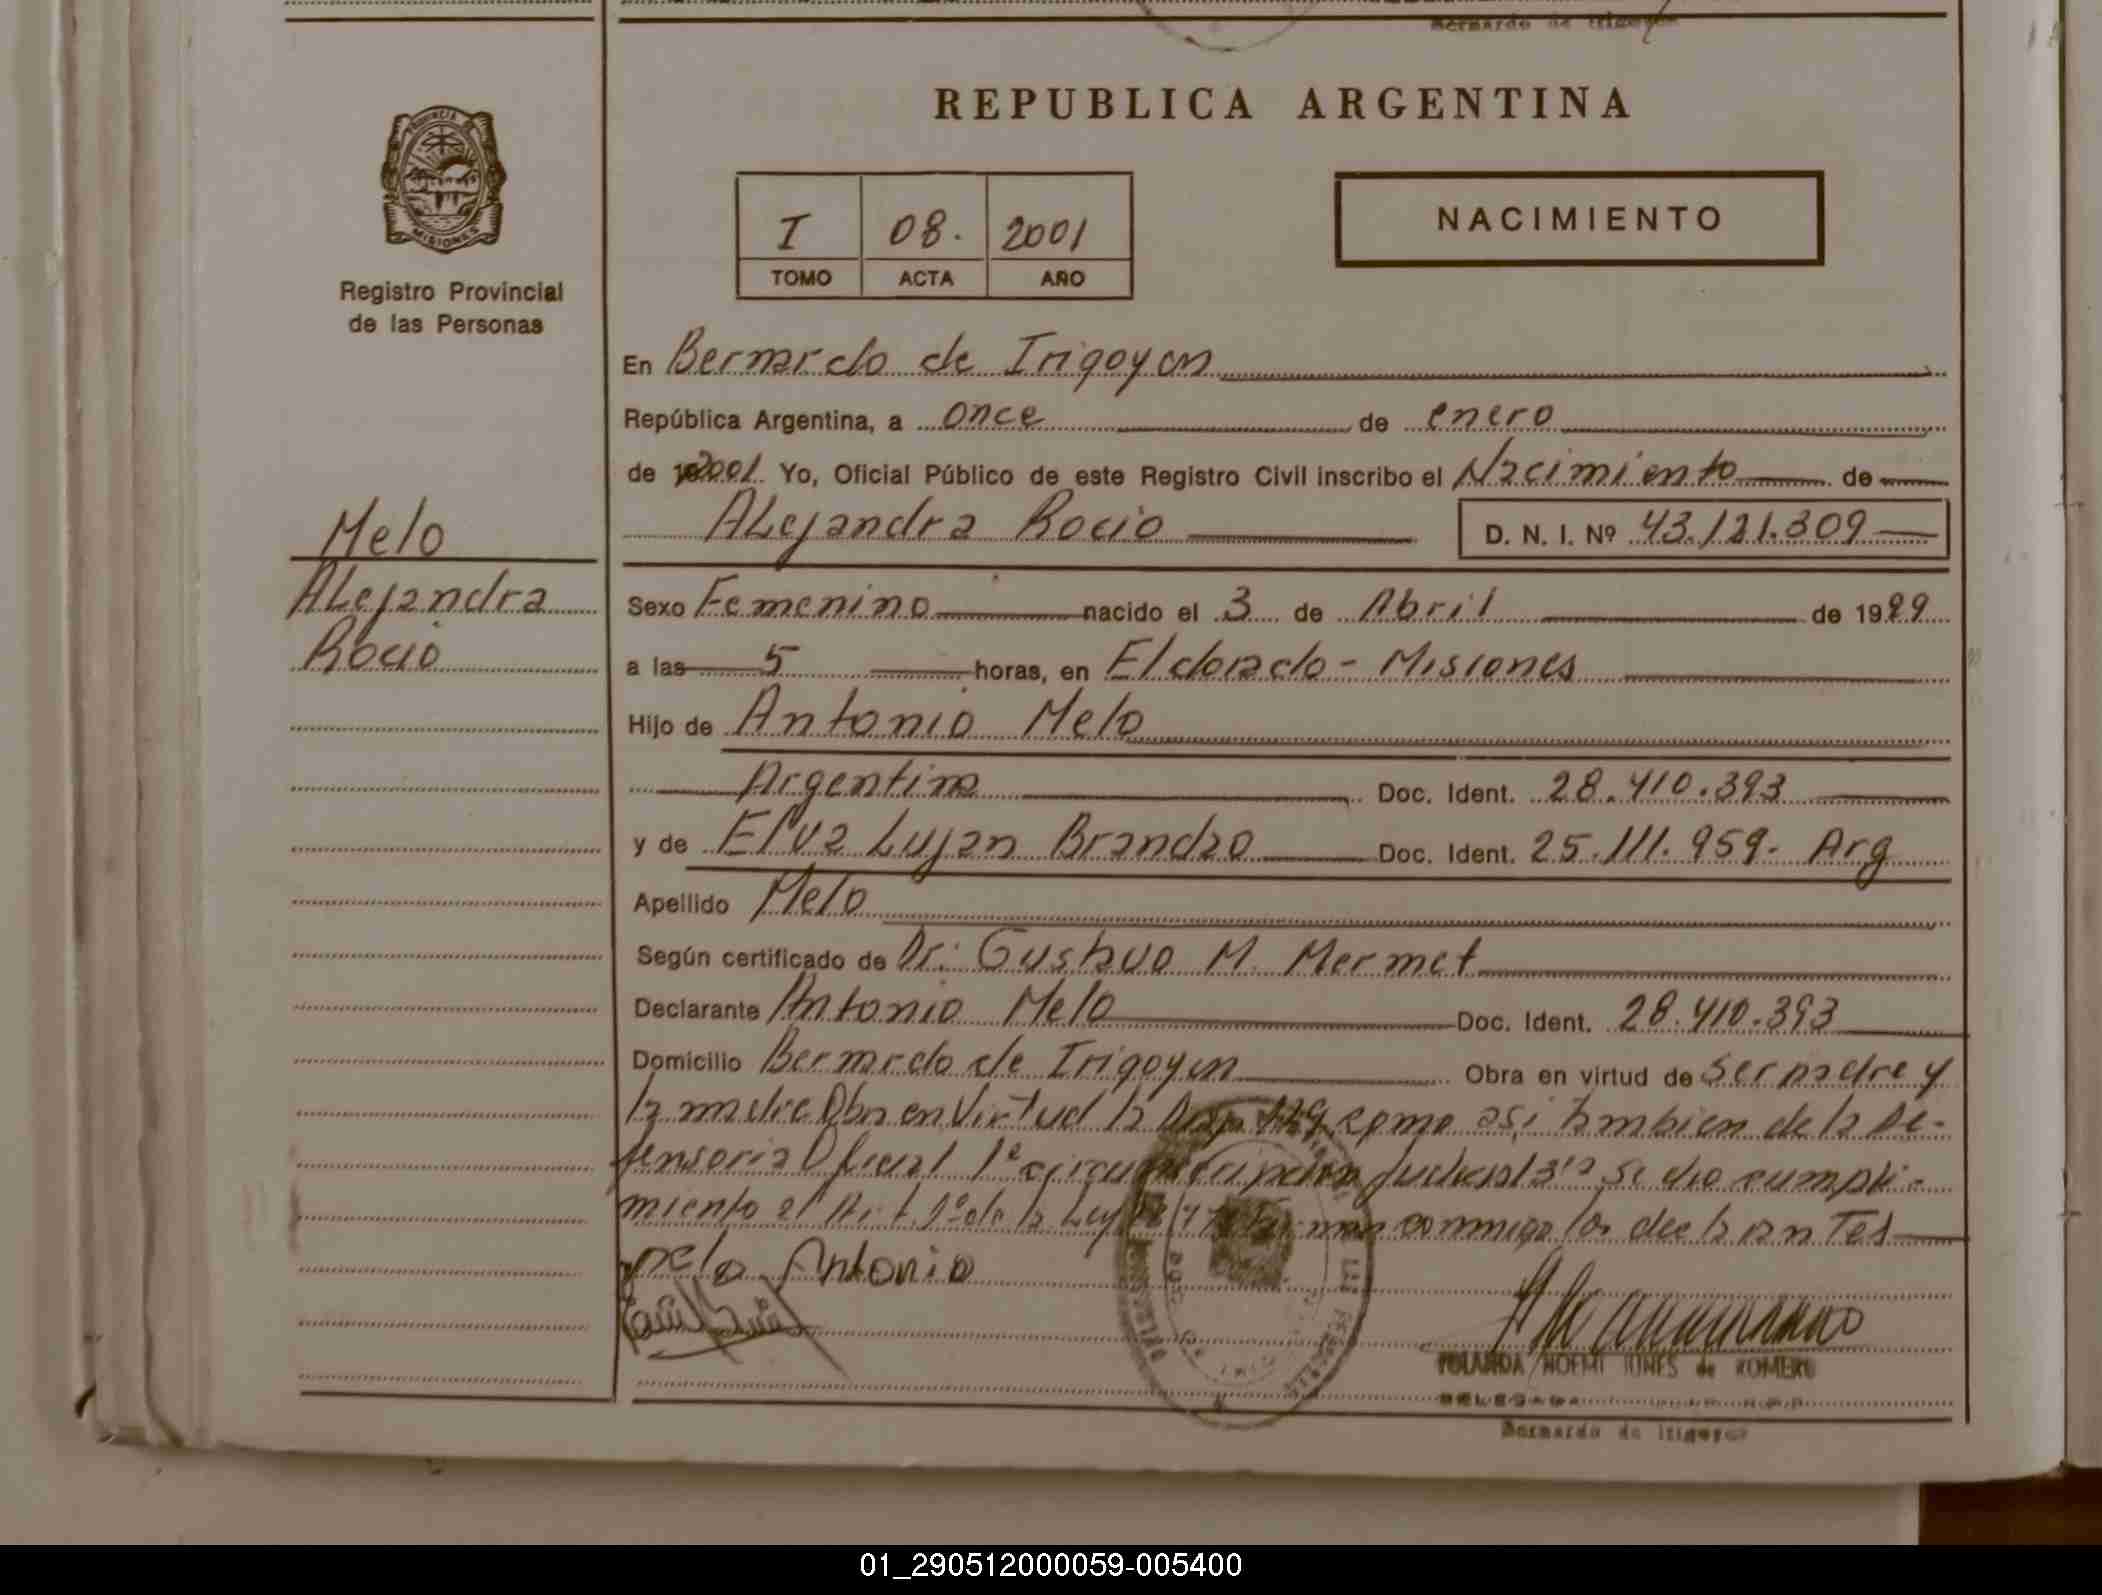 Bernardo de Irigoyen
REPUBLICA ARGENTINA
PROVINCIA DE
MISIONES
Registro Provincial
de las Personas
I 08. 2001
TOMO ACTA AÑO
NACIMIENTO
En Bernardo de Irigoyen
República Argentina, a once de enero
de 2001 Yo, Oficial Público de este Registro Civil inscribo el Nacimiento de
Alejandra Rocio D. N. I. Nº 43.121.309
Melo
Alejandra
Rocio
Sexo Femenino nacido el 3 de Abril de 1999
a las 5 horas, en Eldorado - Misiones
Hijo de Antonio Melo
Argentina Doc. Ident. 28.410.393
y de Elva Lujan Brandao Doc. Ident. 25.111.959- Arg
Apellido Melo
Según certificado de Dr: Gustavo M. Mermet
Declarante Antonio Melo Doc. Ident. 28.410.393
Domicilio Bernardo de Irigoyen Obra en virtud de ser padre y
la madre Obra en Virtud la como asi tambien de la De-
fensoria Oficial 1ª circunscripcion Judicial Se dio cumpli-
miento al Art 1º de la Ley Firman conmigo los declarantes
melo Antonio
YOLANDA NOEMI de ROMERO
DELEGADA
Bernardo de Irigoyen
01_290512000059-005400